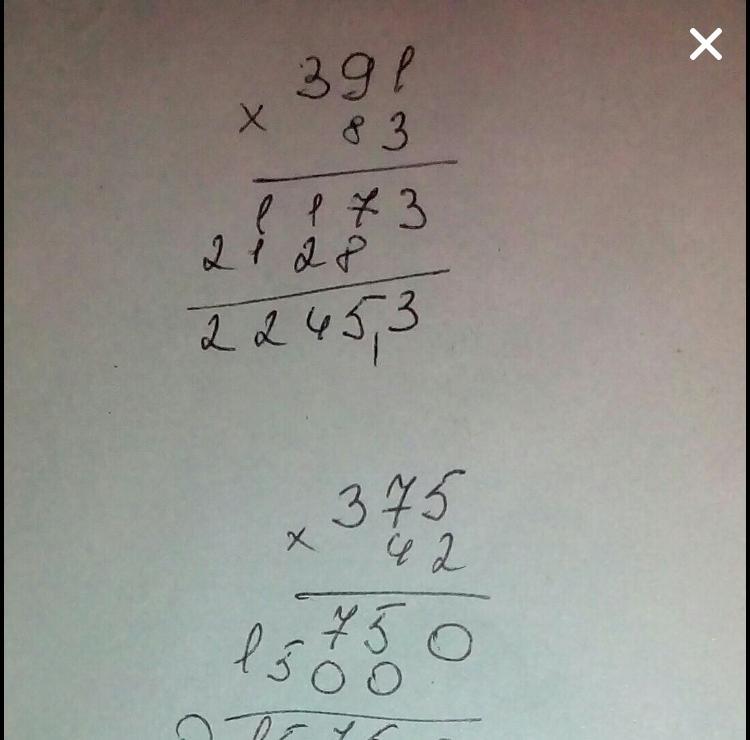 391
× 83
1173
2128
2245,3
375
× 42
750
1500